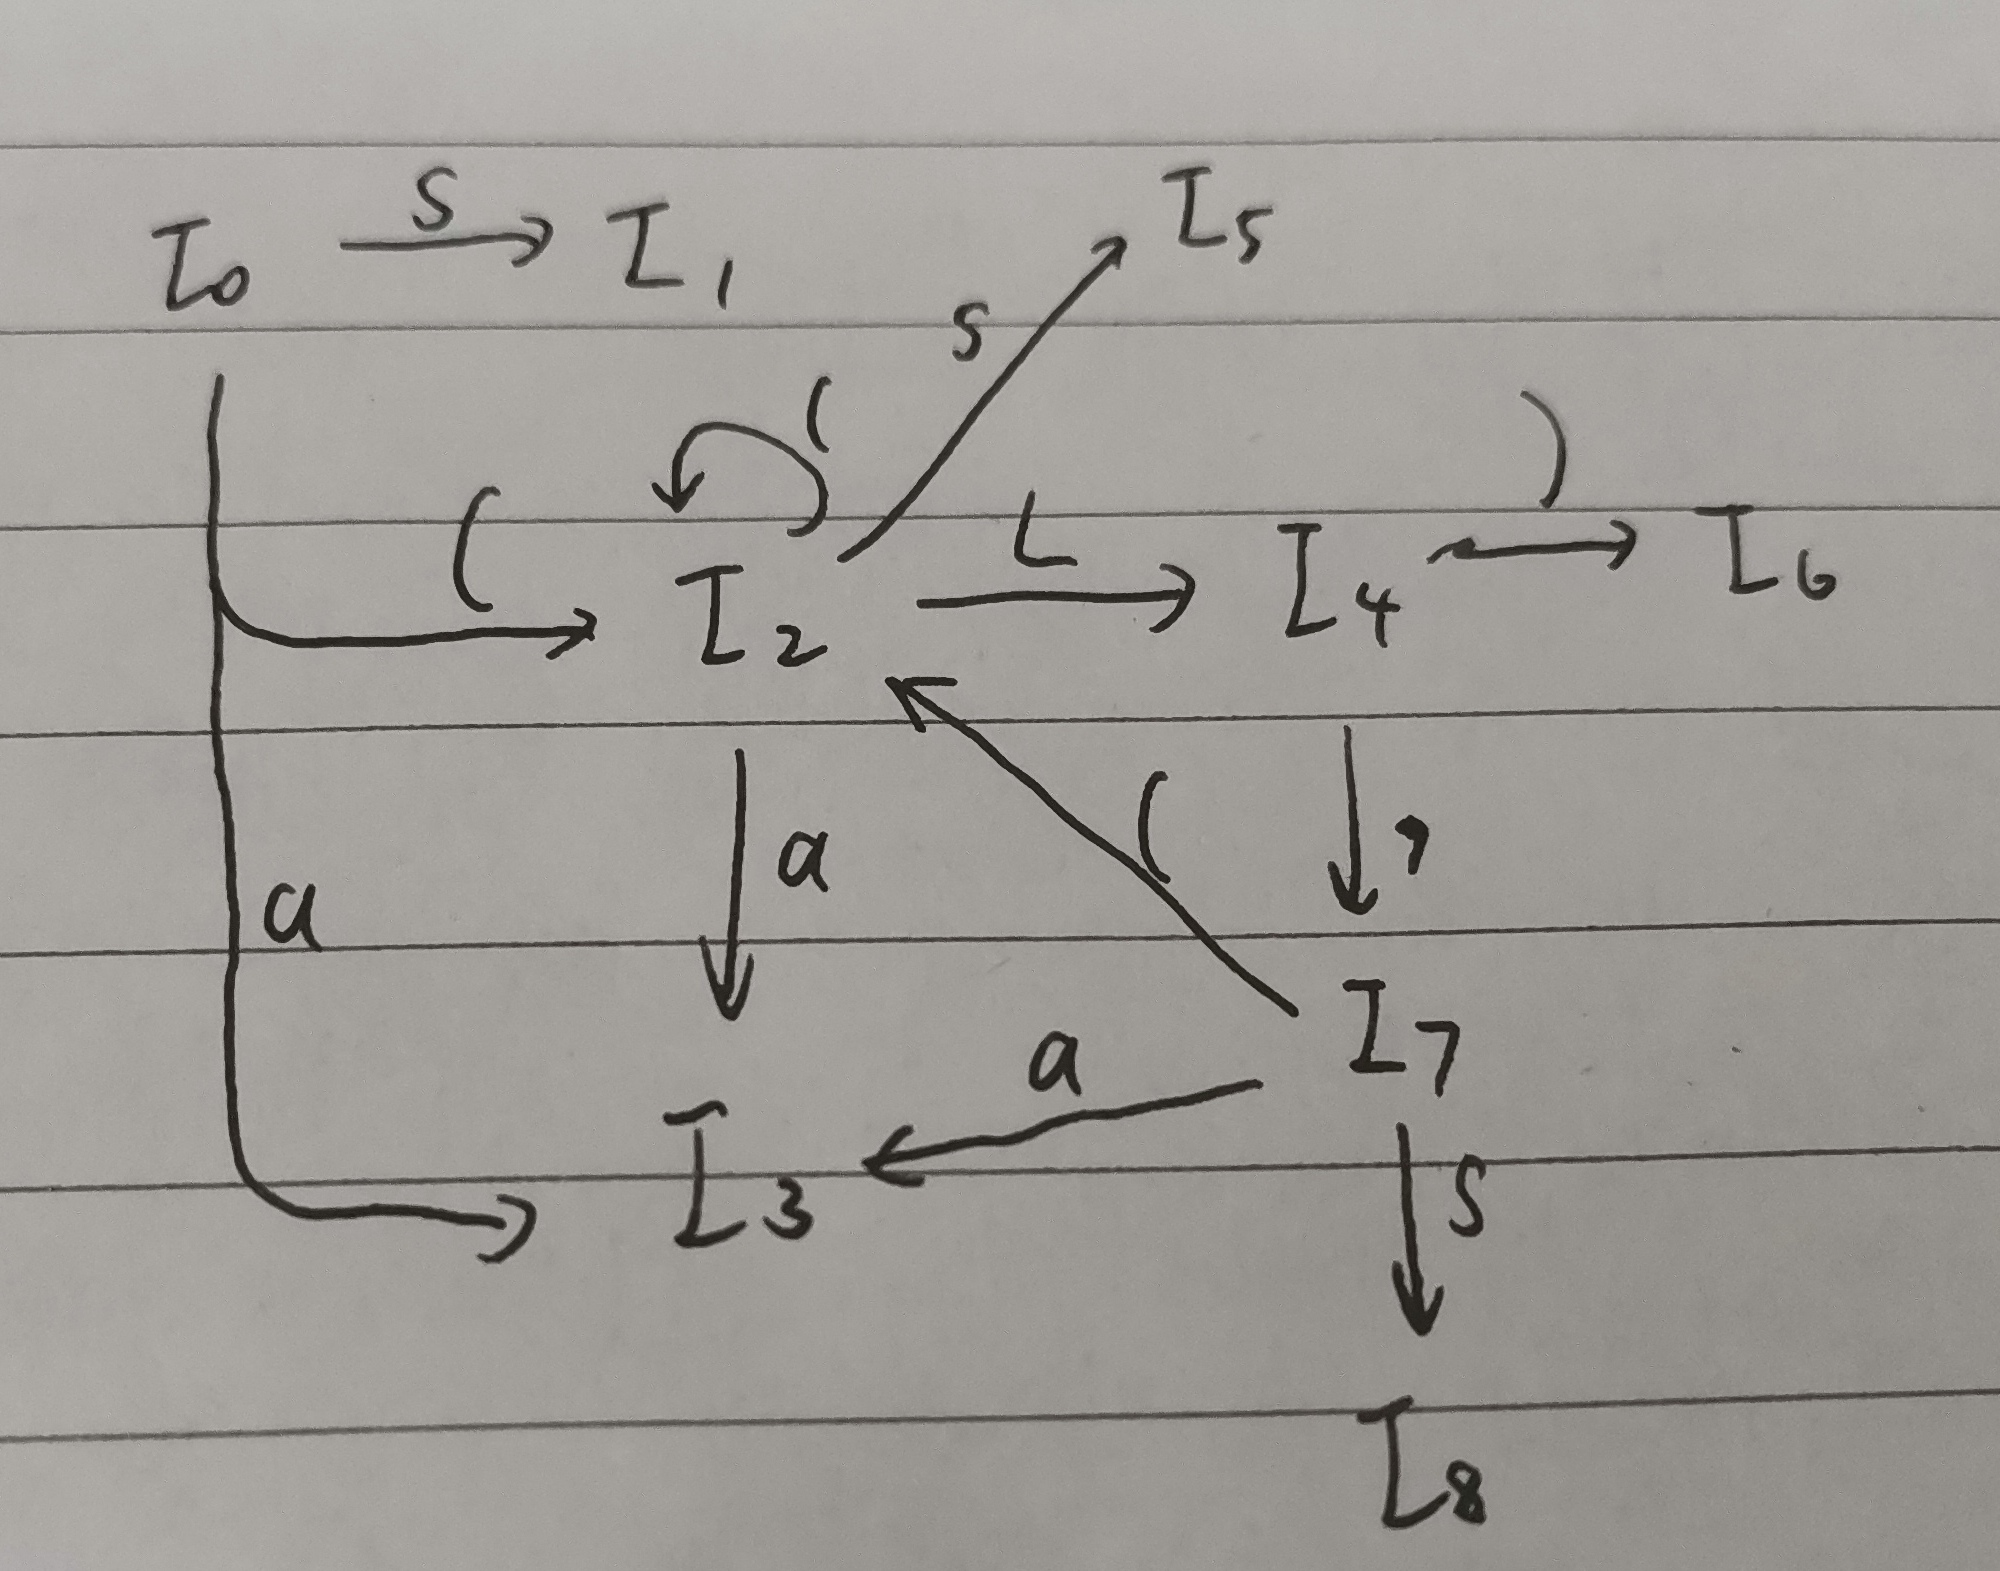 I₀ S I₁ I₅
S
(
( I₂ L I₄ ) I₆
a a ( ,
I₇
a
I₃ S
I₈